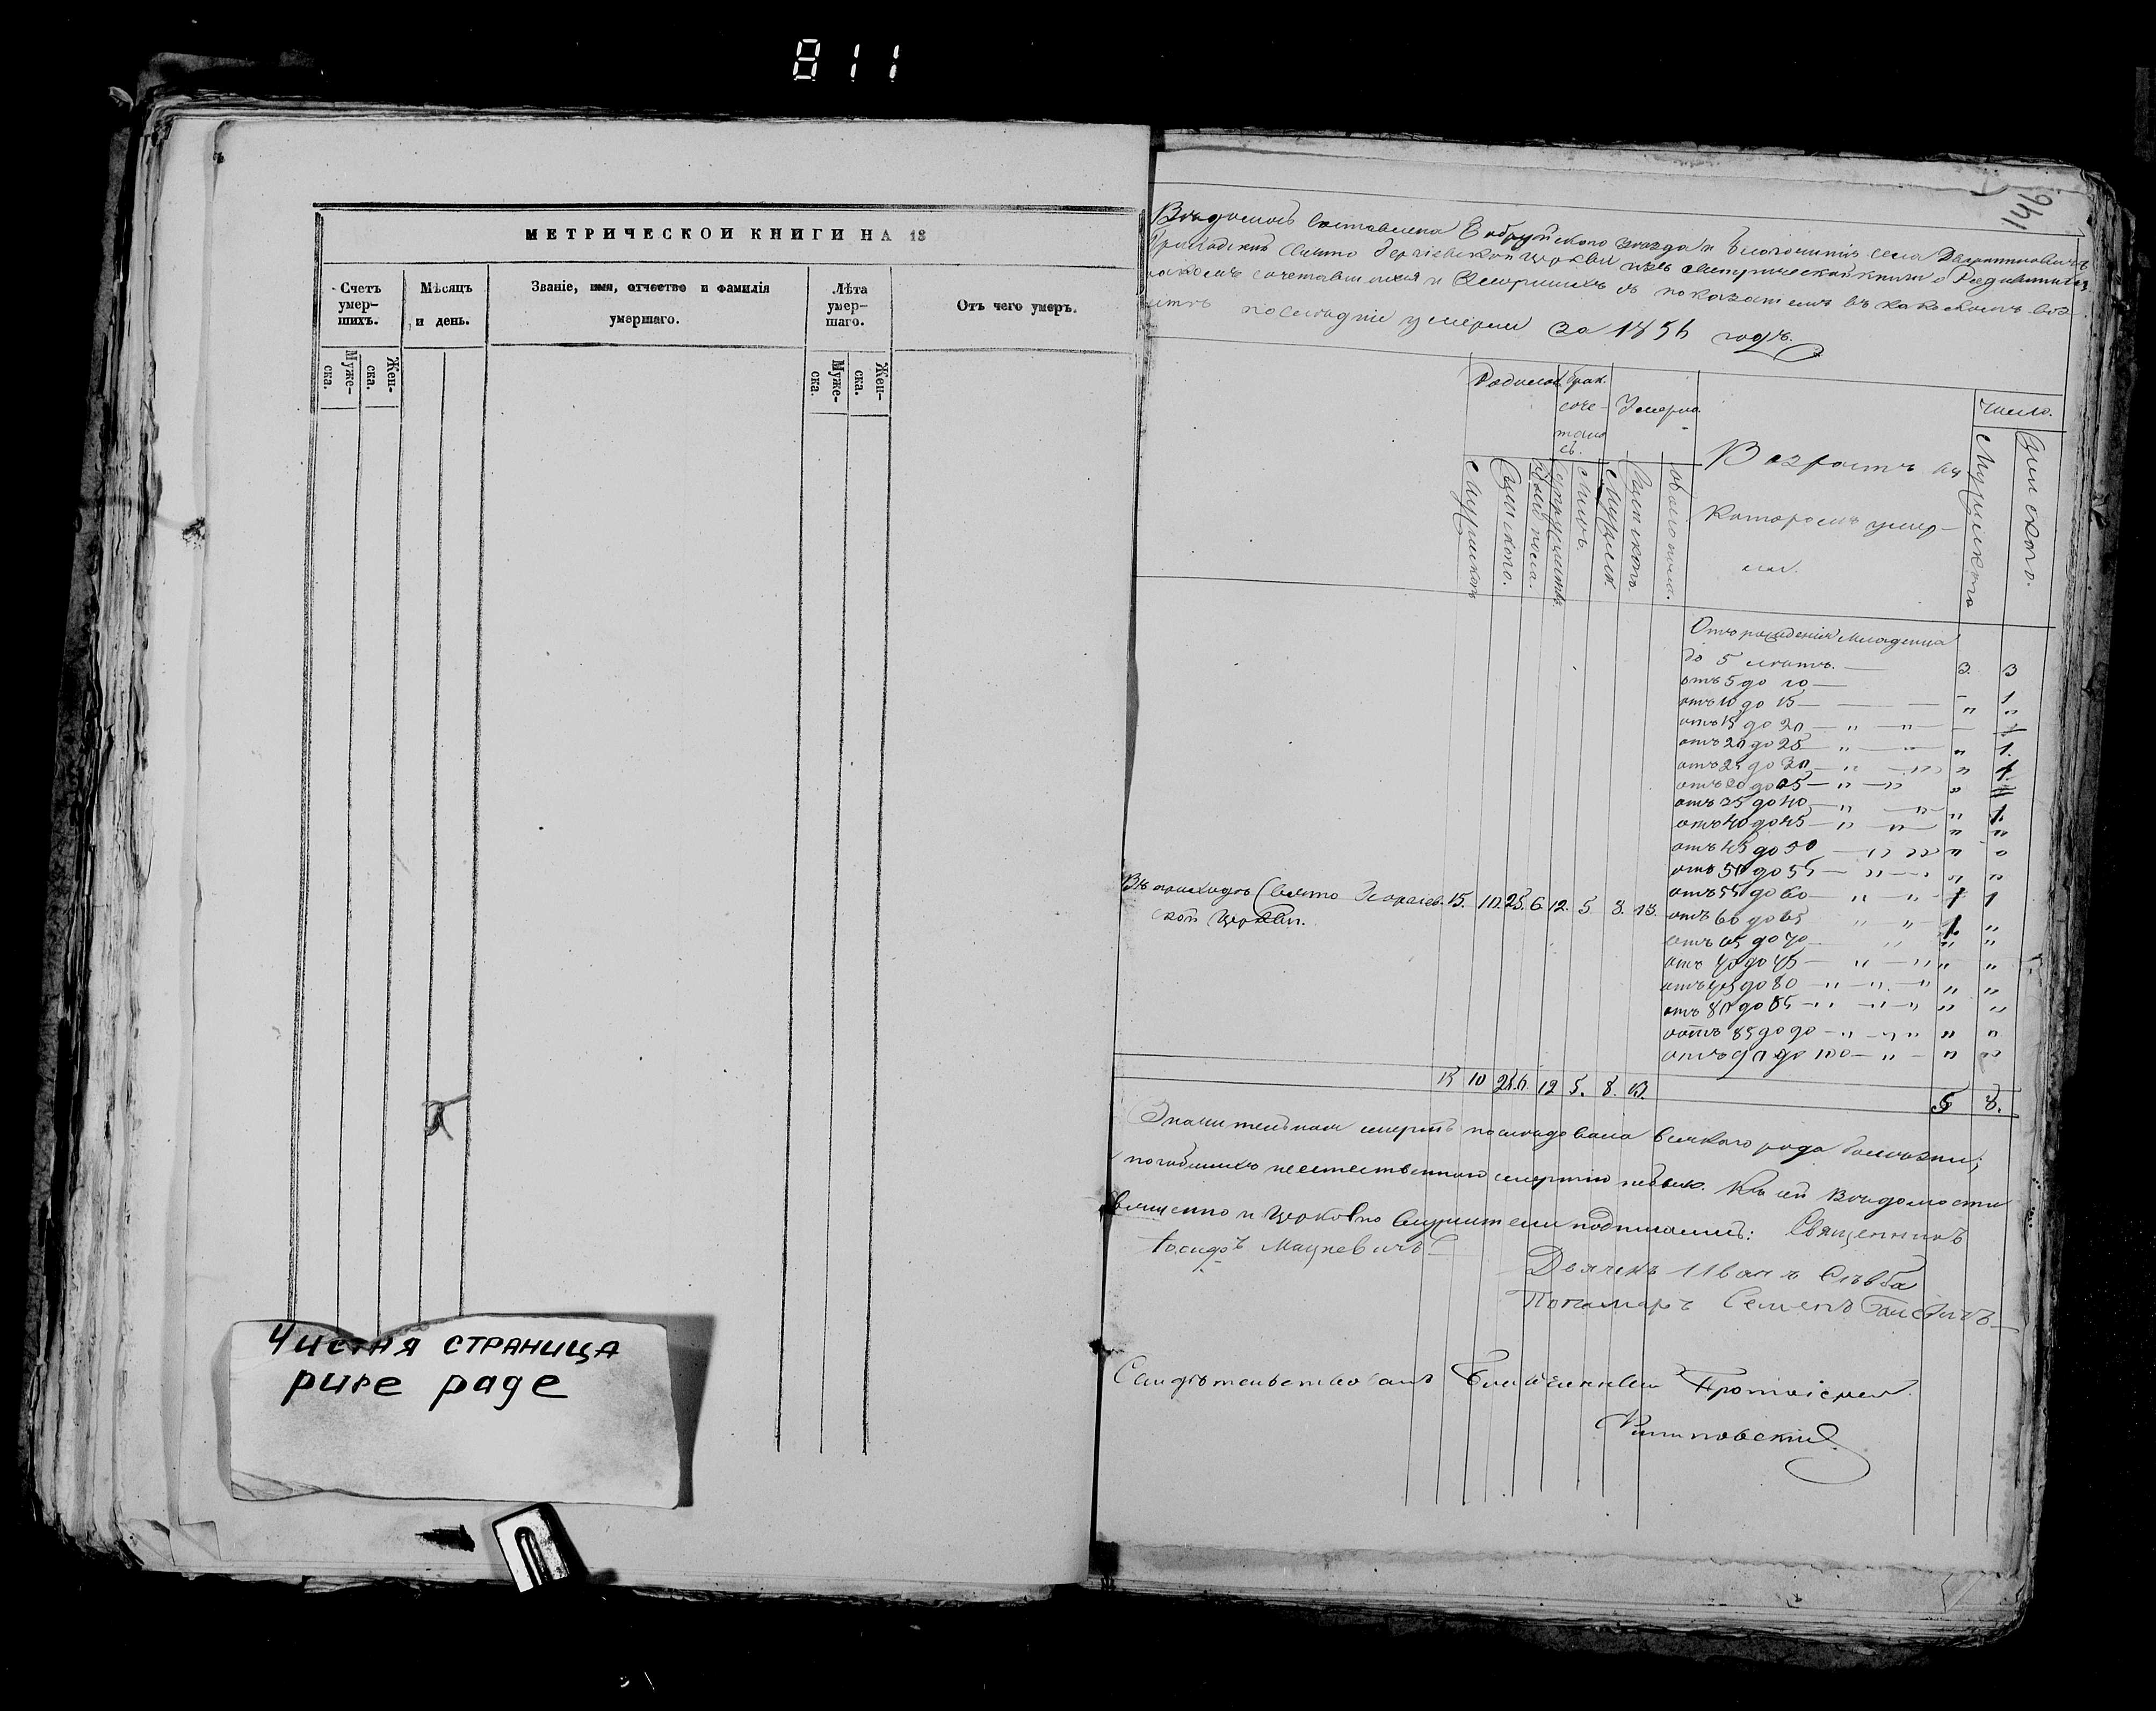 811
МЕТРИЧЕСКОЙ КНИГИ НА 18
Счетъ умер-шихъ.
Мѣсяцъ и день.
Званіе, имя, отчество и фамилія умершаго.
Лѣта умер-шаго.
Отъ чего умеръ.
Муже-ска.
Жен-ска.
Муже-ска.
Жен-ска.
Чистая страница
pure page
146
Вѣдомость составлена Бобруйского уѣзда и благочинія села
церкви изъ метрической книги о
сочетавшихся и умершихъ съ показаніемъ въ какомъ
послѣдніе умерли за 1856 годъ.
Родилось
брак. соче-тало сь.
Умерло.
Возрастъ въ
которомъ умер-
ли.
число.
Мужескаго
Женскаго.
Отъ рожденія младенца
до 5 лѣтъ. — 3. 3
отъ 5 до 10 —
отъ 10 до 15 — — — 1
отъ 15 до 20 — " — "
отъ 20 до 25 — " — " " 1.
отъ 25 до 30 — " " 1.
отъ 30 до 35 — " — "
отъ 35 до 40 — " — " " 1.
отъ 40 до 45 — " — " " "
отъ 45 до 50 — " " " "
отъ 50 до 55 — " — " " "
отъ 55 до 60 — " — " 1 1
отъ 60 до 65 " — " 1. "
отъ 65 до 70 — " " "
отъ 70 до 75 — " — " " "
отъ 75 до 80 — " — " — " " "
отъ 80 до 85 — " — " — " " "
отъ 85 до 90 — " — " " " "
отъ 90 до 100 — " — " "
Въ приходѣ Свято Георгіев- 15. 10. 25. 6. 12. 5. 8. 13.
ской Церкви.
15 10 25. 6. 12 5. 8. 13. 5 8.
смерть послѣдовала всякого рода болѣзни;
погибшихъ неестественною смертію небыло. Къ сей Вѣдомости
священно и церковно служители подписались: Священникъ
Іосифъ Мацкевичъ
Дьячекъ Иванъ
Пономаръ Семенъ
Свидѣтельствовалъ Благочинный Протоіерей